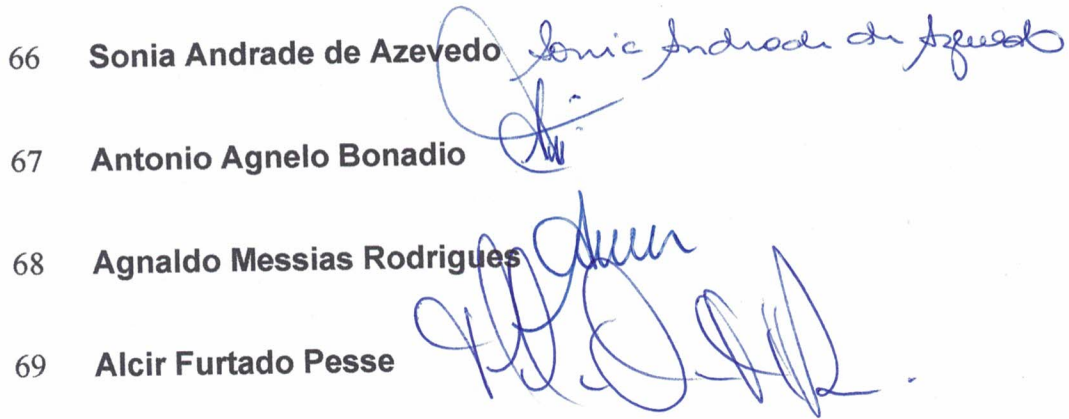 66 Sonia Andrade de Azevedo Sonia Andrade de Azevedo
67 Antonio Agnelo Bonadio
68 Agnaldo Messias Rodrigues
69 Alcir Furtado Pesse